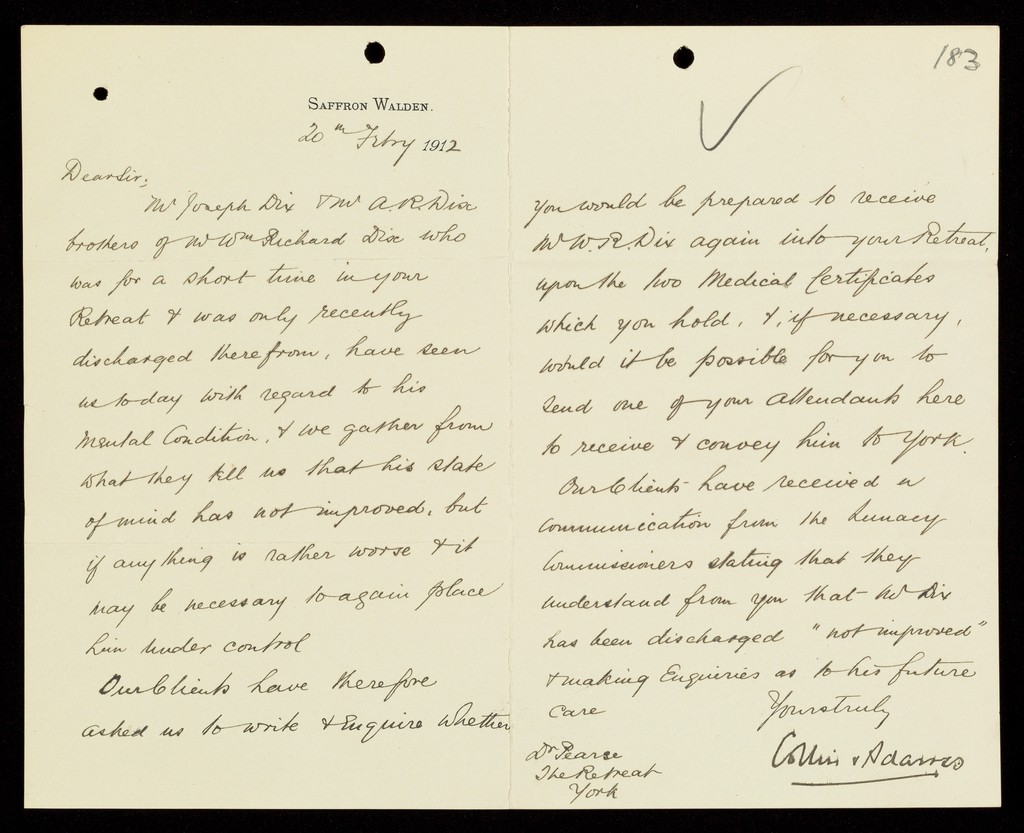 SAFFRON WALDEN.
20th Febry 1912
Dear Sir,
Mr Joseph Dix & Mr A. R. Dix
brothers of Mr Wm Richard Dix who
was for a short time in your
Retreat & was only recently
discharged therefrom, have seen
us today with regard to his
Mental Condition, & we gather from
what they tell us that his state
of mind has not improved, but
if anything is rather worse & it
may be necessary to again place
him under control
Our Clients have therefore
asked us to write & Enquire whether
183
you would be prepared to receive
Mr W. R. Dix again into your Retreat,
upon the two Medical Certificates
which you hold, &, if necessary,
would it be possible for you to
send one of your Attendants here
to receive & convey him to York.
Our Clients have received a
Communication from the Lunacy
Commissioners stating that they
understand from you that Mr Dix
has been discharged "not improved"
& making Enquiries as to his future
care
Yours truly
Collin & Adams
Dr Pearce
The Retreat
York